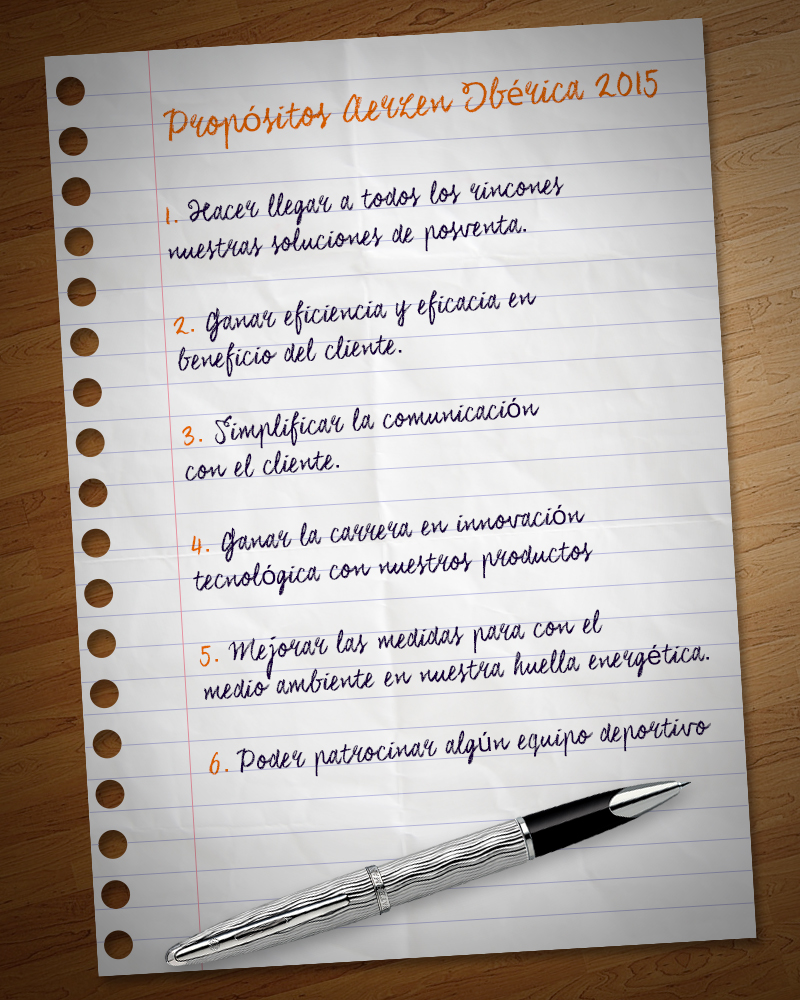 Propósitos Aerzen Ibérica 2015
1. Hacer llegar a todos los rincones
nuestras soluciones de posventa.
2. Ganar eficiencia y eficacia en
beneficio del cliente.
3. Simplificar la comunicación
con el cliente.
4. Ganar la carrera en innovación
tecnológica con nuestros productos
5. Mejorar las medidas para con el
medio ambiente en nuestra huella energética.
6. Poder patrocinar algún equipo deportivo